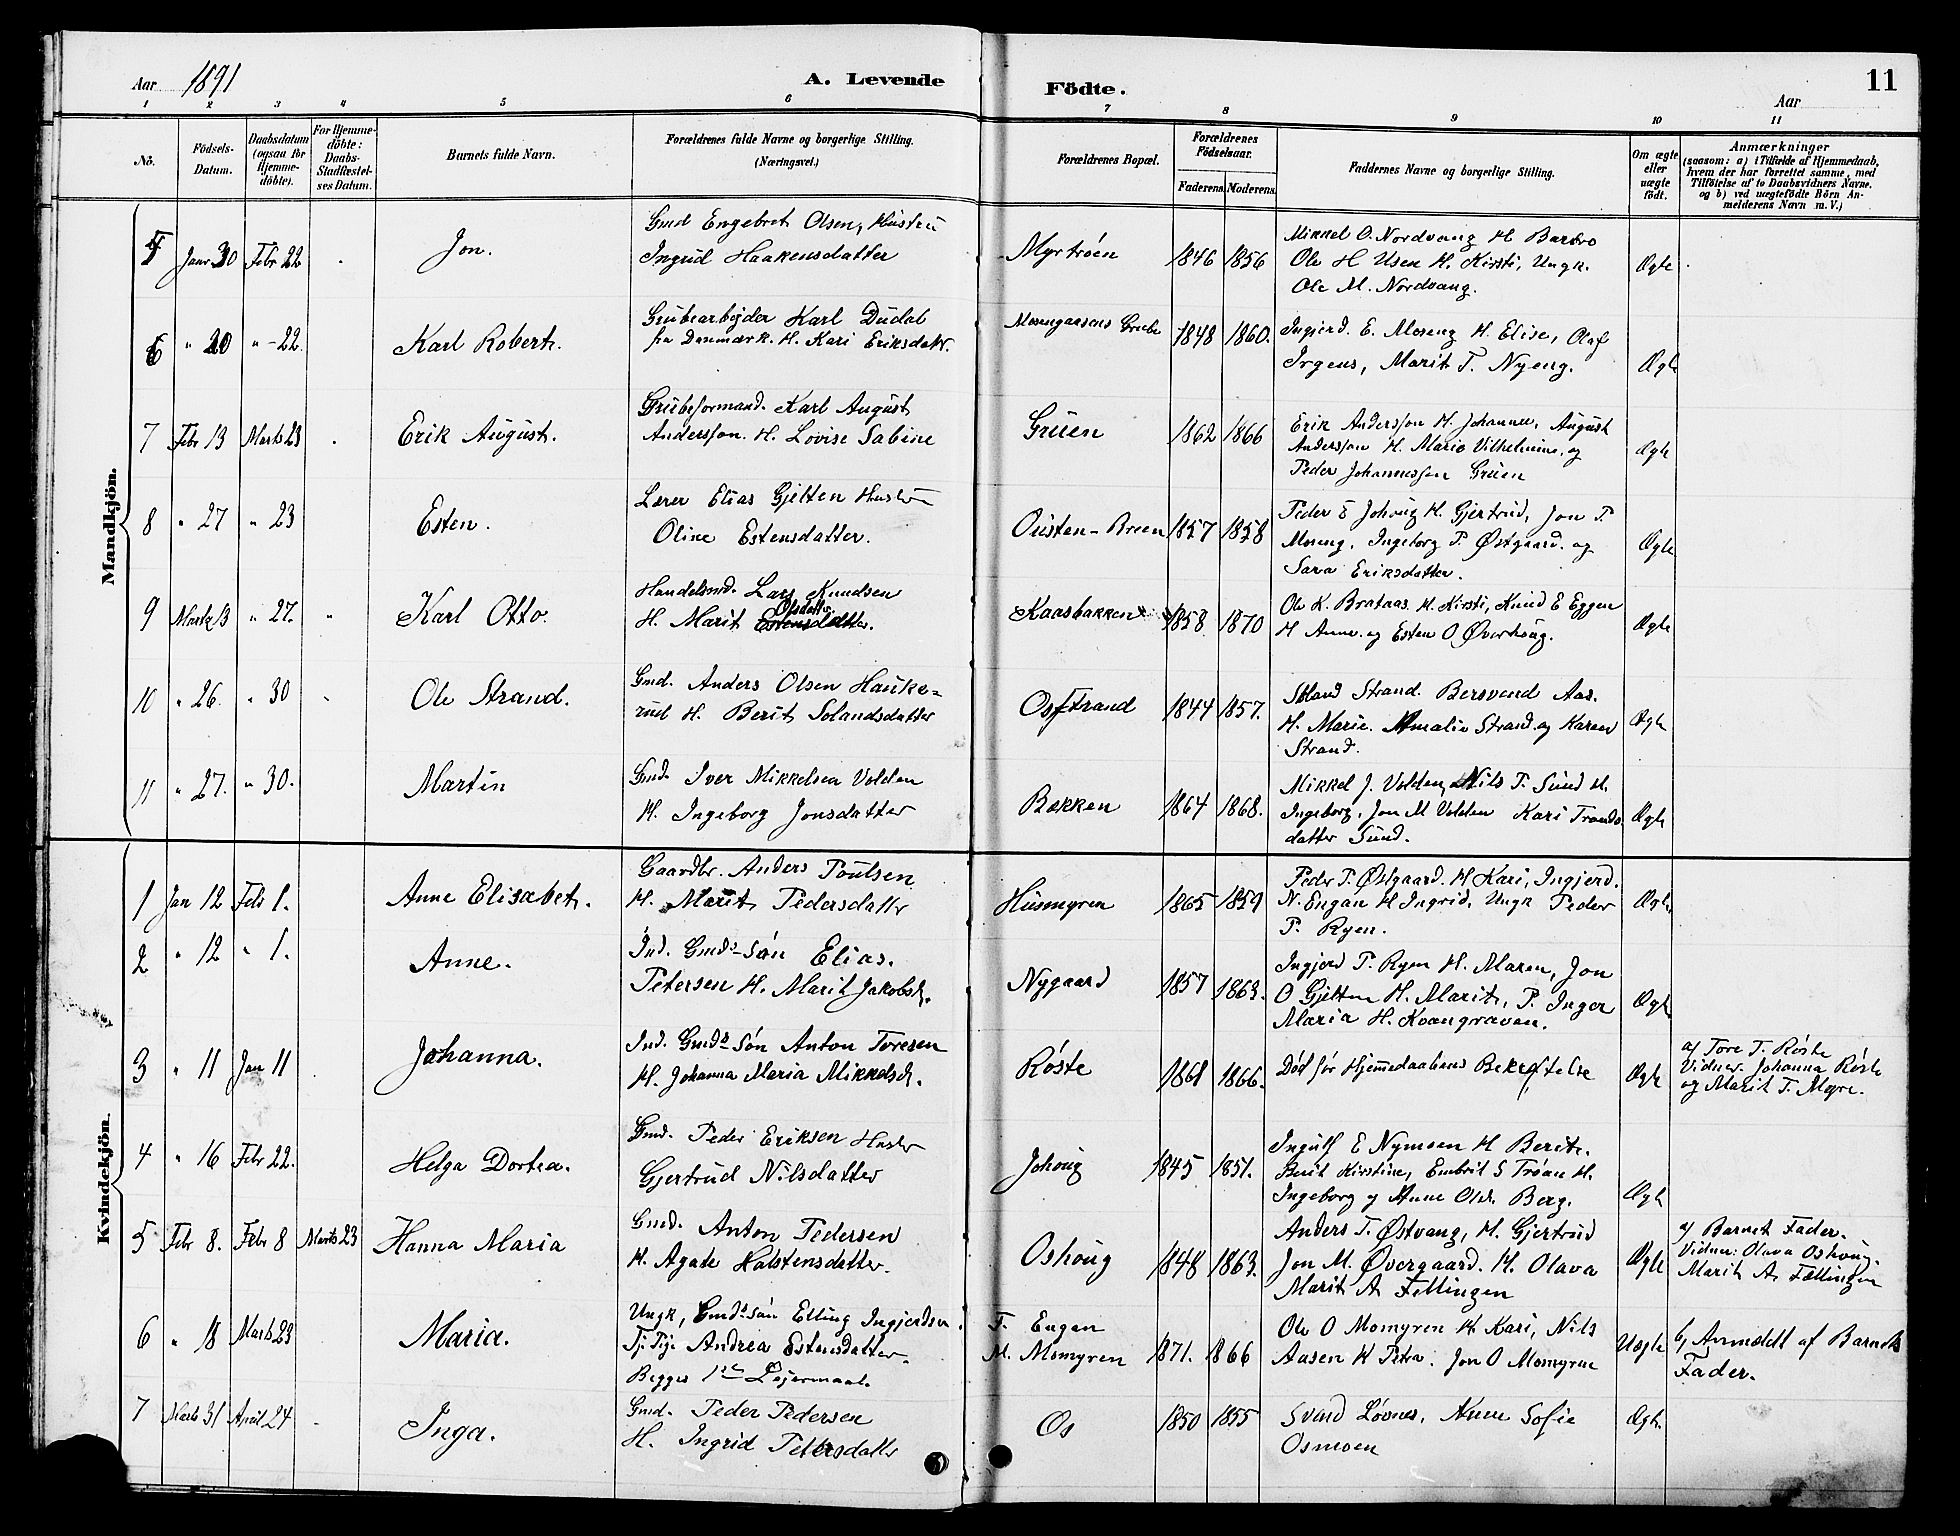 Aar 1891 A. Levende Födte. 11
Aar
1 2 3 4 5 6 7 8 9 10 11
No. Födsels-Datum. Daabsdatum (ogsaa for Hjemme-döbte). For Hjemme-döbte: Daabs-Stadfæstel-ses Datum. Barnets fulde Navn. Forældrenes fulde Navne og borgerlige Stilling. (Næringsvei.) Forældrenes Bopæl. Forældrenes Födselsaar. Faderens. Moderens. Faddernes Navne og borgerlige Stilling. Om ægte eller uægte födt. Anmærkninger (saasom: a) i Tilfælde af Hjemmedaab, hvem der har forrettet samme, med Tilföielse af to Daabsvidners Navne. og b) ved uægtefödte Börn An-melderens Navn m. V.)
Mandkjön.
5 Janr 30 Febr 22 Jon. Gmd Engebret Olsen, Hustru
Ingrid Haakensdatter Myrtröen 1846 1856 Mikkel O. Nordvang H Bardro
Ole H Usen H. Kirsti, Ungk.
Ole M. Nordvang. Ægte
6 " 20 " - 22. Karl Robert. Grubearbejder Karl Dudal
fra Danmark. H. Kari Eriksdatr. Mosengaasens Grube 1848 1860. Ingjerd. E. Moseng H. Elise, Olaf
Irgens, Marit T. Nyeng. Ægte
7 Febr 13 Marts 23 Erik August. Grubeformand. Karl August
Andersson. H. Lovise Sabine Gruen 1862 1866 Erik Andersson H. Johanne, August
Andersson H. Marie Vilhelmine. og
Peder Johannesson Gruen Ægte
8 " 27 " 23 Esten. Lærer Elias Gjelten Hustru
Oline Estensdatter. Ousten-Breen 1857 1858 Peder E Johoug H. Gjertrud, Jon P.
Moseng, Ingeborg P. Østgaard. og
Sara Eriksdatter. Ægte
9 Marts 13 " 27. Karl Otto. Handelsmd. Lars Knudsen
H. Marit Olsdatter. Kaasbakken 1858 1870 Ole K. Brataas H. Kirsti, Knud E Eggen
H Anne. og Esten O Øverhoug. Ægte
10 " 26. " 30 Ole Strand. Gmd. Anders Olsen Hauke-
rud H. Berit Solandsdatter Osstrand 1844 1857. Soland Strand. Bersvend Aas.
H. Marie. Amalie Strand. og Karen
Strand. Ægte
11 " 27. " 30. Martin Gmd. Iver Mikkelsen Volden
H. Ingeborg Jonsdatter Bakken 1864 1868. Mikkel J. Volden, Nils T. Sund H.
Ingeborg, Jon M Volden Kari Tronds
datter Sund. Ægte
Kvindekjön.
1 Jan 12 Feb 1. Anne Elisabet. Gaardbr. Anders Poulsen
H. Marit Pedersdatter Husmyren 1865 1859 Peder P. Østgaard. H Kari, Ingjerd.
N. Engan H Ingrid, Ungk Peder
P. Ryen. Ægte
2 " 12 " 1. Anne. Ind. Gmds-søn Elias.
Petersen H. Marit Jakobsd. Nygaard 1857 1863. Ingjerd P. Ryen H. Maren, Jon
O Gjelten H. Marit, P. Inger
Maria H. Kvangraven. Ægte
3 " 11 Jan 11 Johanna. Ind. Gmds søn Anton Toresen
H. Johanna Maria Mikkelsd. Røste 1861 1866. Død før Hjemmedaabens Bekræftelse Ægte a/ Tore T. Røste
Vidner: Johanna Røste
og Marit T. Myre.
4 " 16 Febr 22. Helga Dortea. Gmd. Peder Eriksen Hustr
Gjertrud Nilsdatter Johoug 1845 1851. Ingulf E Nymoen H Berit.
Berit Kirstine, Embrit S Trøan H.
Ingeborg og Anne Olsd. Berg. Ægte
5 Febr 8. Febr 8 Marts 23 Hanna Maria Gmd. Anton Pedersen
H. Agate Halstensdatter. Oshoug 1848 1863. Anders T. Østvang, H. Gjertrud
Jon M. Øvergaard. H. Olava
Marit A Fellingen Ægte a/ Barnets Fader.
Vidner: Olava Oshoug
Marit A. Fællingen
6 " 18 Marts 23 Maria. Ungk, Gmds søn Elling Ingjerdsen.
Tj. Pige Andrea Estensdatter.
Begges 1ste Lejermaal. F. Engan
M. Momyren 1871. 1866 Ole O Momyren H Kari, Nils
Aasen H Petra. Jon O Momyren Uægte b, Anmeldt af Barnets
Fader.
7 Marts 31 April 24 Inga. Gmd. Peder Pedersen
H. Ingrid Petersdatter Os 1850 1855 Svend Løvnes, Anne Sofie
Osmoen Ægte.